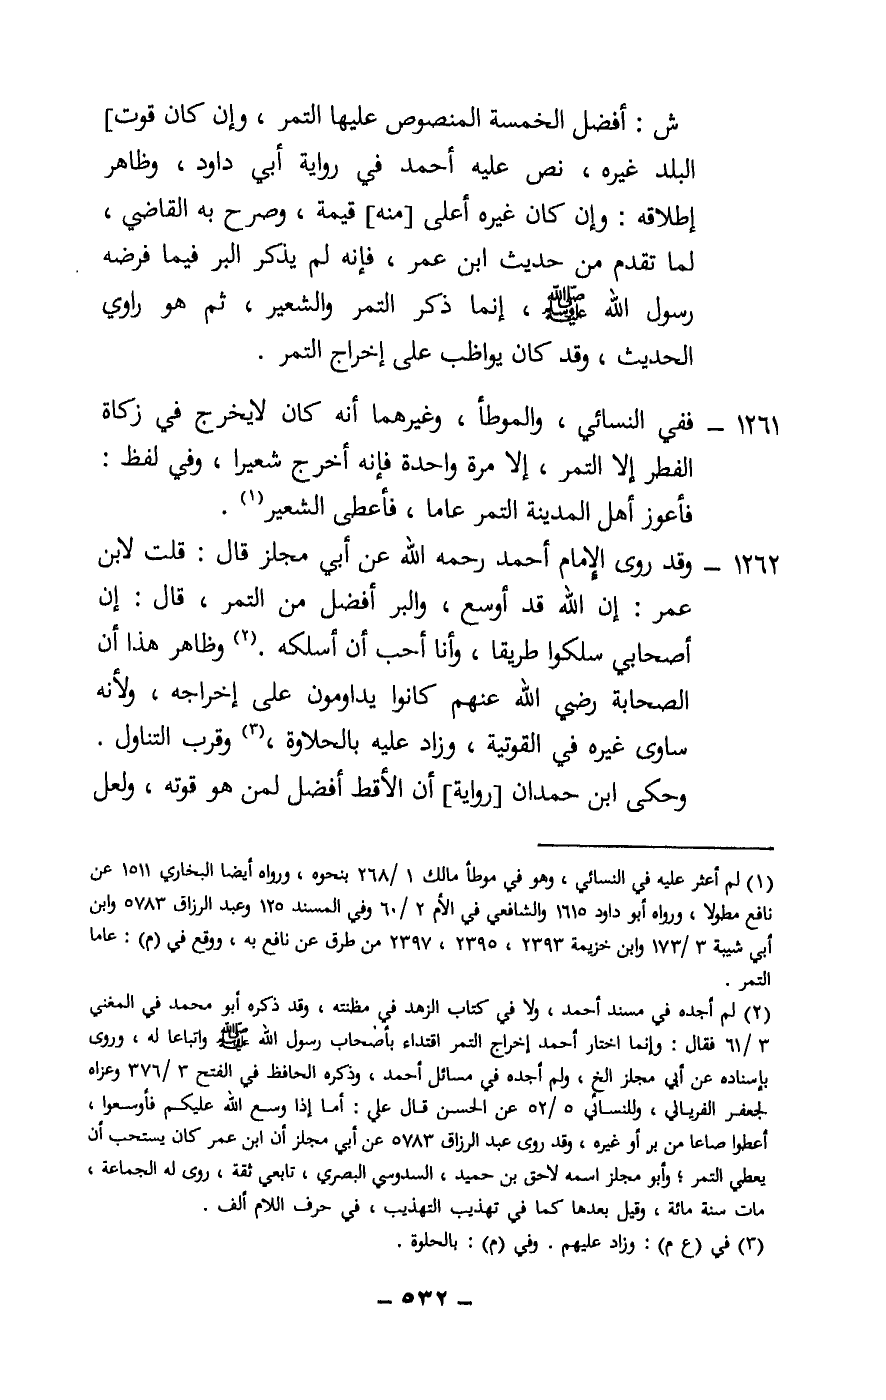 ش : أفضل الخمسة المنصوص عليها التمر ، وإن كان قوت]
البلد غيره ، نص عليه أحمد في رواية أبي داود ، وظاهر
إطلاقه : وإن كان غيره أعلى [منه] قيمة ، وصرح به القاضي ،
لما تقدم من حديث ابن عمر ، فإنه لم يذكر البر فيما فرضه
رسول الله ﷺ ، إنما ذكر التمر والشعير ، ثم هو راوي
الحديث ، وقد كان يواظب على إخراج التمر .
١٢٦١ – ففي النسائي ، والموطأ ، وغيرهما أنه كان لايخرج في زكاة
الفطر إلا التمر ، إلا مرة واحدة فإنه أخرج شعيرا ، وفي لفظ :
فأعوز أهل المدينة التمر عاما ، فأعطى الشعير(١) .
١٢٦٢ – وقد روى الإمام أحمد رحمه الله عن أبي مجلز قال : قلت لابن
عمر : إن الله قد أوسع ، والبر أفضل من التمر ، قال : إن
أصحابي سلكوا طريقا ، وأنا أحب أن أسلكه .(٢) وظاهر هذا أن
الصحابة رضي الله عنهم كانوا يداومون على إخراجه ، ولأنه
ساوى غيره في القوتية ، وزاد عليه بالحلاوة ،(٣) وقرب التناول .
وحكى ابن حمدان [رواية] أن الأقط أفضل لمن هو قوته ، ولعل
(١) لم أعثر عليه في النسائي ، وهو في موطأ مالك ١ /٢٦٨ بنحوه ، ورواه أيضا البخاري ١٥١١ عن
نافع مطولا ، ورواه أبو داود ١٦١٥ والشافعي في الأم ٢ /٦٠ وفي المسند ١٢٥ وعبد الرزاق ٥٧٨٣ وابن
أبي شيبة ٣ /١٧٣ وابن خزيمة ٢٣٩٣ ، ٢٣٩٥ ، ٢٣٩٧ من طرق عن نافع به ، ووقع في (م) : عاما
التمر .
(٢) لم أجده في مسند أحمد ، ولا في كتاب الزهد في مظنته ، وقد ذكره أبو محمد في المغني
٣ /٦١ فقال : وإنما اختار أحمد إخراج التمر اقتداء بأصحاب رسول الله ﷺ واتباعا له ، وروى
بإسناده عن أبي مجلز الخ ، ولم أجده في مسائل أحمد ، وذكره الحافظ في الفتح ٣ /٣٧٦ وعزاه
لجعفر الفريابي ، وللنسائي ٥ /٥٢ عن الحسن قال علي : أما إذا وسع الله عليكم فأوسعوا ،
أعطوا صاعا من بر أو غيره ، وقد روى عبد الرزاق ٥٧٨٣ عن أبي مجلز أن ابن عمر كان يستحب أن
يعطي التمر ؛ وأبو مجلز اسمه لاحق بن حميد ، السدوسي البصري ، تابعي ثقة ، روى له الجماعة ،
مات سنة مائة ، وقيل بعدها كما في تهذيب التهذيب ، في حرف اللام ألف .
(٣) في (ع م) : وزاد عليهم . وفي (م) : بالحلوة .
– ٥٣٢ –